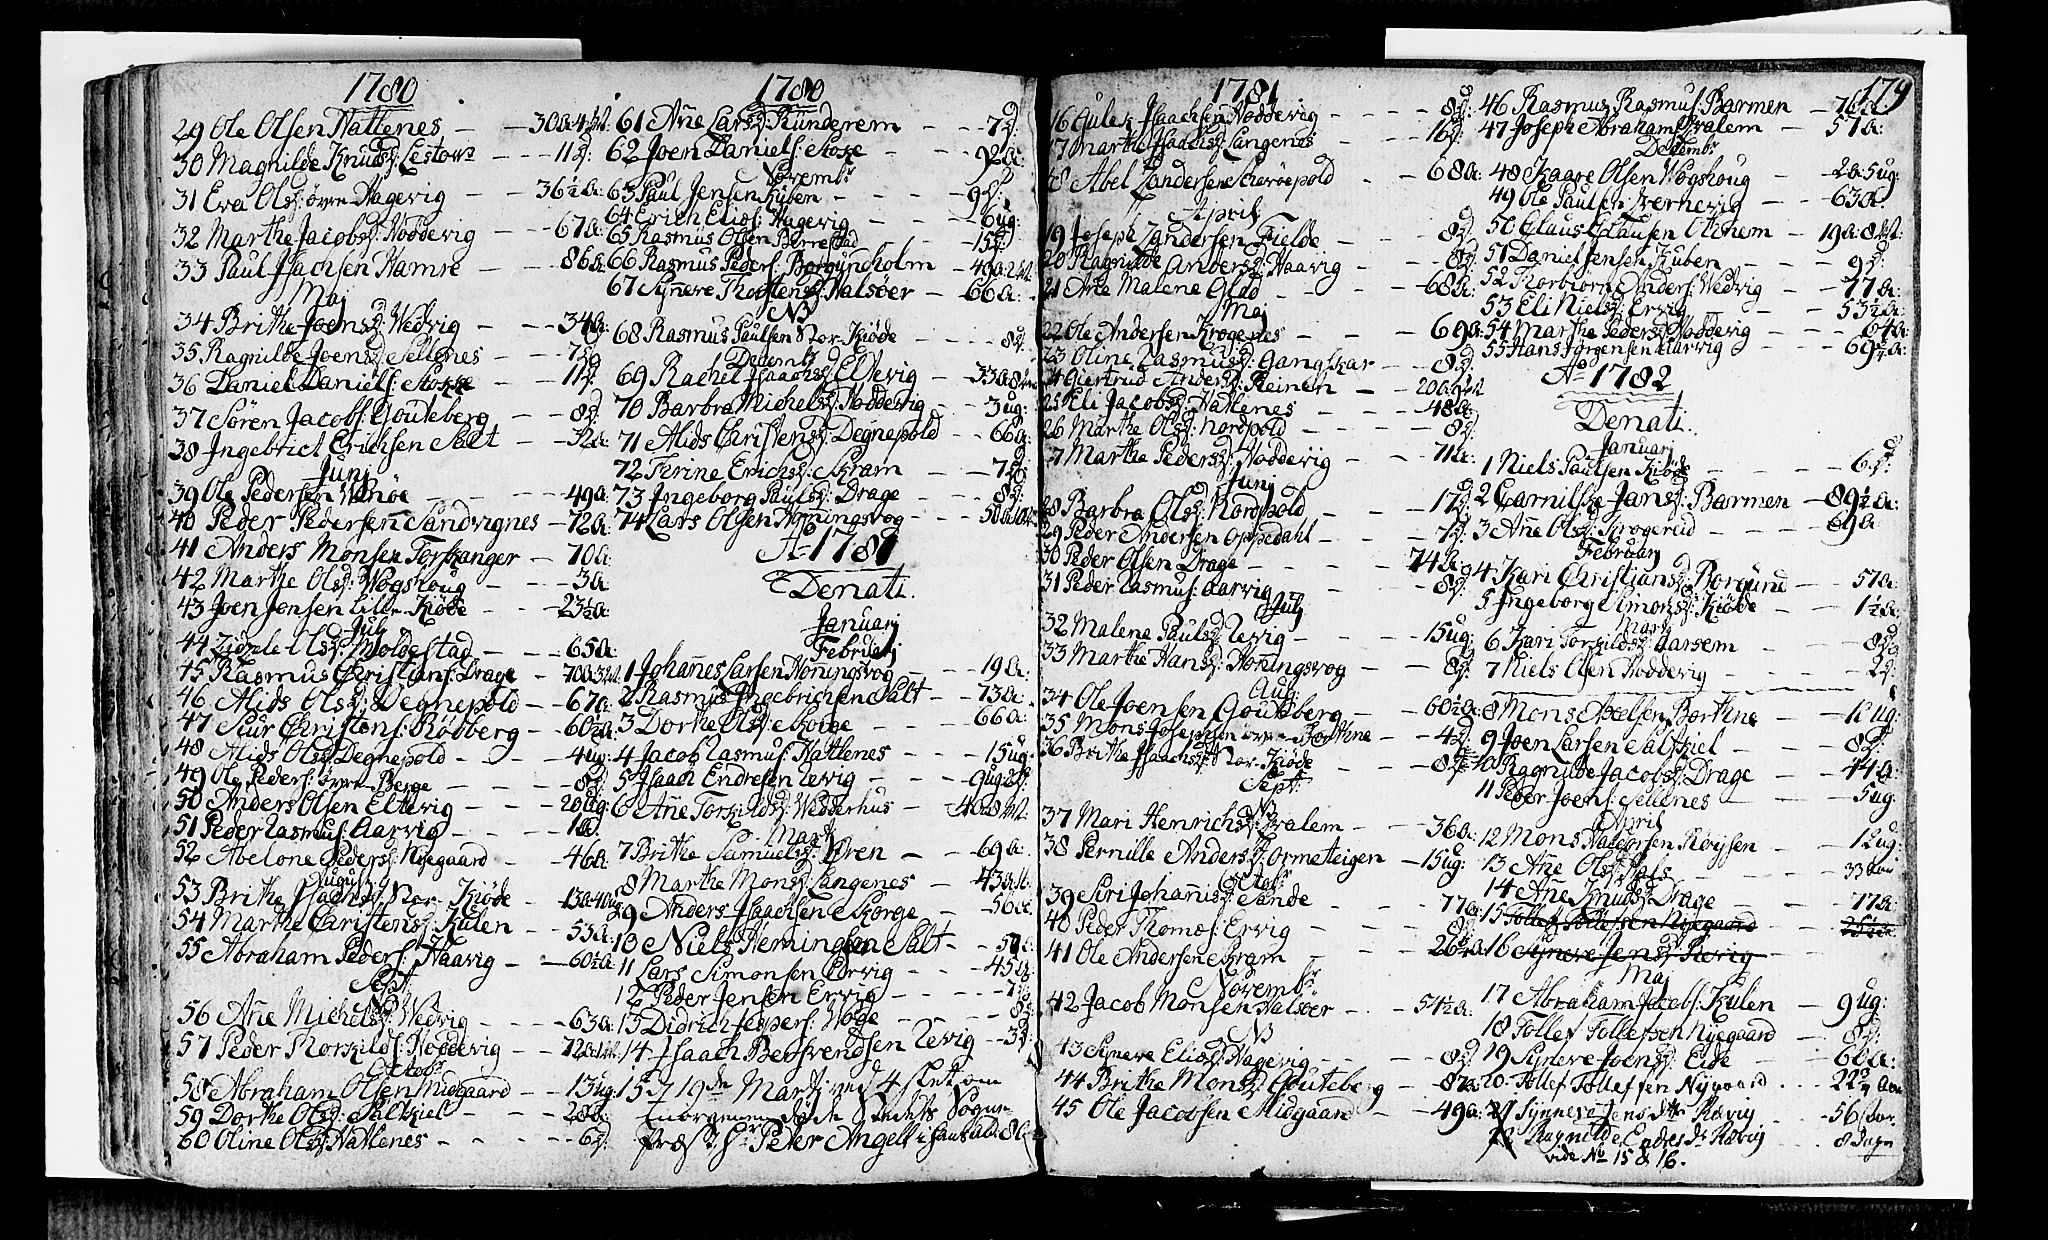 1780
29 Ole Olsen Natlenes — 30a: 4 Mt.
30 Magnilde Knudsd: Lestow — 11d:
31 Eva Olsd: övre Hagevig — 36½a:
32 Marthe Jacobsd: Hoddevig — 67a:
33 Paul Isachsen Hamre — 86a:
Maj
34 Brithe Joensd: Wedvig — 34a:
35 Ragnilde Joensd: Sellenes — 7d:
36 Daniel Daniels: Stokke — 11d:
37 Sören Jacobs: Gouteberg — 8d:
38 Ingebrict Erichsen Salt — 32a:
Junj
39 Ole Pedersen — 49a:
40 Peder Pedersen Sandvignes — 72a:
41 Anders Monsen Torskanger — 70a:
42 Marthe Olsd: Wogshoug — 3a:
43 Joen Jonsen Lille Kiöde — 23½a:
Julj
44 Olsd: Moldestad — 65a:
45 Rasmus Christians: Drage — 70a: 3 Mt.
46 Alids Olsd: Degnepold — 67a:
47 Siur Christens: Rödberg — 60½a:
48 Alids Olsd: Degnepold — 4ug:
49 Ole Peders: övre Berge — 8d:
50 Anders Olsen Eltevig — 20ug:
51 Peder Rasmus: Aarvig — 1a:
52 Abelone Pedersd: Nyegaard — 46a:
Augustj
53 Brithe Isachsd: Nor-Kiöde — 13a: 40ug:
54 Marthe Christensd: Kulen — 53a:
55 Abraham Peders: Haavig — 60½a:
Sept:
56 Ane Michelsd: Wedvig — 63a:
57 Peder Thorkilds: Hoddevig — 72a:
Octobr
58 Abraham Olsen Midgaard — 13ug:
59 Dorthe Olsd: Saltkiel — 28a:
60 Oline Olsd: Natlenes — 6d:
1780
61 Ane Larsd: Runderem — 7d:
62 Joen Daniels: Stokke — 92a:
Novembr
63 Paul Jensen Kuben — 9d:
64 Erich Elias: Hagevig — 6ug:
65 Rasmus Olsen Berrestad — 15d:
66 Rasmus Peders: Borgundholm — 49a: 2 Mt.
67 Synnere Thorstensd: Halsöer — 66a:
NB
68 Rasmus Paulsen Nor-Kiöde — 8d:
Decembr
69 Rachel Isaachsd: Eltevig — 33a: 8
70 Barbra Michelsd: Hoddevig — 3ug:
71 Alids Christensd: Degnepold — 66a:
72 Thrine Erichsd: Skram — 7d:
73 Ingeborg Paulsd: Drage — 8d:
74 Lars Olsen Honningsvog — 50a:
Ao 1781
Denati.
Januarj
Februarj
1 Johannes Larsen Honingsvog — 19a:
2 Rasmus Ingebrichtsen Salt — 73a:
3 Dorthe Olsd: Stokke — 66a:
4 Jacob Rasmus: Natlenes — 15ug:
5 Isaach Endresen Revig — 9ug: 2d:
6 Ane Torkildsd: Wedderhus — 40a: 8 Mt.
Martj
7 Brithe Samuelsd: Ören — 69a:
8 Marthe Monsd: Langenes — 43a:
9 Anders Isaachsen Skorge — 56a:
10 Niels Hemingsen Salt — 57a:
11 Lars Simonsen Ervig — 45a:
12 Peder Jensen Ervig — 7d:
13 Didrich Jespers: Woge — 8d:
14 Isaach Berssvendsen Revig — 3d:
15 19de Martj ved 4 slet om
morgenen döde Stedets Sogne-
Præst Hr Peder Angell i sin alder 86
1781
16 Gule Isaachsen Hoddevig — 8d:
17 Marthe Isaachsd: Langenes — 16d:
18 Abel Zandersen Scharöepold — 68a:
April
19 Joseph Zandersen Fielde — 8d:
20 Ragnilde Andersd: Haavig — 8d:
21 Ane Malene Glad — 68a:
Maj
22 Ole Andersen Krogenes — 69a:
23 Oline Rasmusd: Gangskar — 8d:
24 Giertrud Andersd: Reinen — 20a:
25 Eli Jacobsd: Natlenes — 48a:
26 Marthe Olsd: Nordpold — 8d:
27 Marthe Pedersd: Hoddevig — 71a:
Junj
28 Barbra Olsd: Nordpold — 17d:
29 Peder Andersen Oppedahl — 7d:
30 Peder Olsen Drage — 74a:
31 Peder Rasmus: Aarvig — 8d:
Julj
32 Malene Paulsd: Revig — 15ug:
33 Marthe Hansd: Honningsvog — 8d:
Aug:
34 Ole Joensen Gouteberg — 60½a:
35 Mons Josephsen övre Borthne — 4d:
36 Brithe Isaachsd: Nor-Kiöde — 8d:
Sept:
NB
37 Mari Henrichsd: Hvalem — 36a:
38 Pernille Andersd: Ormeteigen — 15ug:
Octobr
39 Siri Johannisd: Sande — 77a:
40 Peder Thomes: Ervig — 8d:
41 Ole Andersen Skram — 26½a:
Novembr
42 Jacob Monsen Halsöer — 54½a:
NB
43 Synneve Eliasd: Hagevig — 8d:
44 Brithe Monsd: Gouteberg — 87a:
45 Ole Jacobsen Midgaard — 49a:
179
46 Rasmus Rasmus: Barmen — 76a:
47 Joseph Abraham: Hvalem — 57a:
Decembr
48 Kaare Olsen Wogshoug — 2a: 5ug:
49 Ole Paulsen — 63a:
50 Claus Clausen Otthem — 19a: 8 Mt:
51 Daniel Jensen Kuben — 9d:
52 Thorbiörn Anders: Wedvig — 77a:
53 Eli Nielsd: Ervig — 53½a:
54 Marthe Pedersd: Hoddevig — 64a:
55 Hans Jörgensen Aarvig — 69¼a:
Ao 1782
Denati.
Januarj
1 Niels Paulsen Kiöde — 6d:
2 Carnilske Jansd: Barmen — 89½a:
3 Ane Olsd: Krogerud — 69a:
Februarj
4 Kari Christiansd: Borgund — 57a:
5 Ingeborg Simonsd: Kiöde — 1½a:
Martj
6 Kari Torkildsd: Aarsem — 8d:
7 Niels Olsen Hoddevig — 2d:
8 Mons Axelsen Borthne — 12ug:
9 Joen Larsen Saltkiel — 8d:
10 Ragnilde Jacobsd: Drage — 44a:
11 Peder Joens: Sellenes — 5ug:
April
12 Mons Haldorsen Röyssen — 12ug:
13 Ane Olsd: Hals — 33 Aar
14 Ane Knudsd: Drage — 77a:
15 Tollef Tollefsen Nyegaard — 23½a:
16 Synneve Jensd: Rævig
Maj
17 Abraham Jacobs: Kulen — 9ug:
18 Tollef Tollefsen Nyegaard — 8d:
19 Synneve Joensd: Eide — 60a:
20 Tollef Tollefsen Nÿgaard — 22¾ Aar
21 Synneve Jensdttr Rævig — 56 Aar
22 Ragnilde Endresdr Rævig — 8 Dage
vide No 15 & 16.